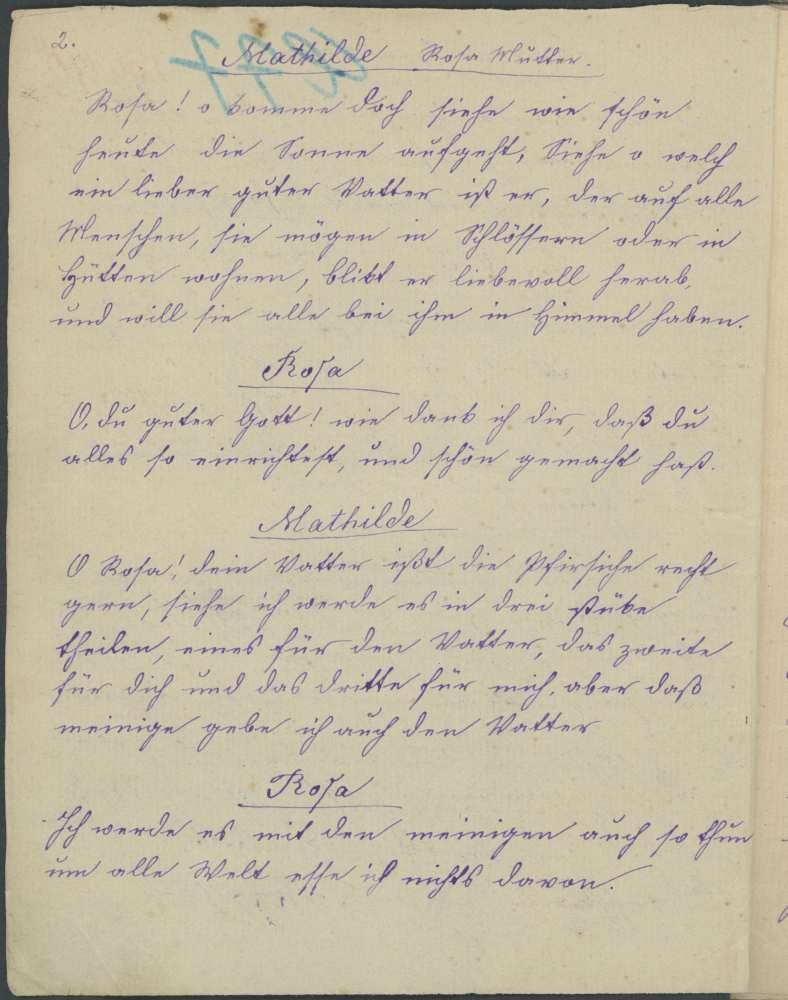 2.
Mathilde Rosa Mutter.
Rosa! o komme doch siehe wie schön
heute die Sonne aufgeht, Siehe o welch
ein lieber guter Vatter ist er, der auf alle
Menschen, sie mögen in Schlössern oder in
Hütten wohnen, blikt er liebevoll herab,
und will sie alle bei ihm in Himmel haben.
Rosa
O, du guter Gott! wie dank ich dir, daß du
alles so einrichtest, und schön gemacht hast.
Mathilde
O Rosa! dein Vatter ißt die Pfirsiche recht
gern, siehe ich werde es in drei stüke
theilen, eines für den Vatter, das zweite
für dich und das dritte für mich, aber daß
meinige gebe ich auch den Vatter
Rosa
Ich werde es mit den meinigen auch so thun
um alle Welt esse ich nichts davon.